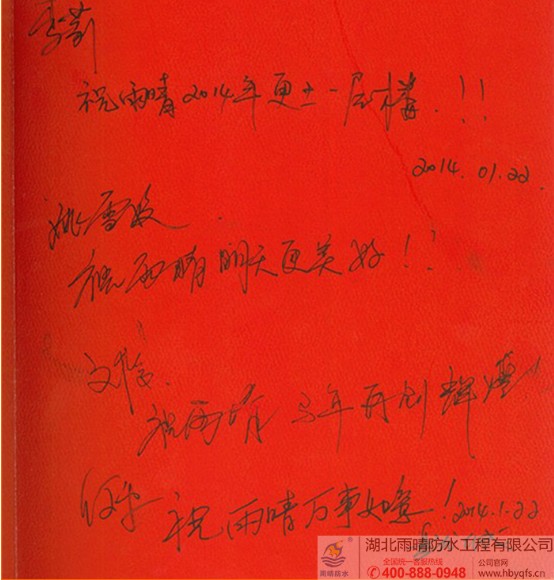 祝雨晴2014年更上一层楼.!!
2014.01.22
姚雪
祝雨晴明天更美好!!
祝雨晴马年再创辉煌
祝雨晴万事如意!2014.1.22
雨晴防水
湖北雨晴防水工程有限公司
全国统一客服热线
400-888-0948
公司官网
www.hbyqfs.cn